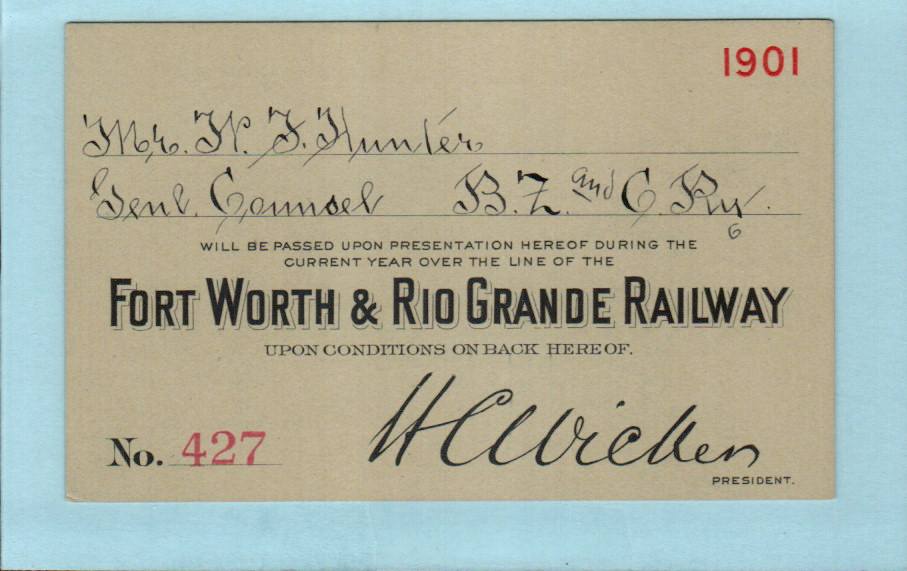 1901
Mr. W. F. Hunter
Genl. Counsel B. Z. and C. Ry.
6
WILL BE PASSED UPON PRESENTATION HEREOF DURING THE
CURRENT YEAR OVER THE LINE OF THE
FORT WORTH & RIO GRANDE RAILWAY
UPON CONDITIONS ON BACK HEREOF.
No. 427
PRESIDENT.